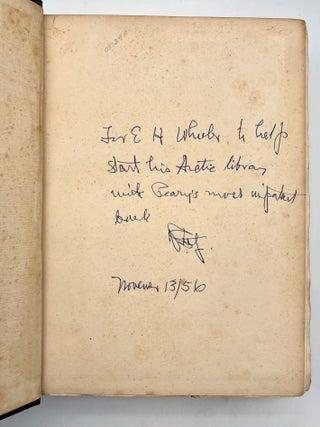 For E H Wheeler, to help
start his Arctic library
with Peary's most important
book
November 13/56